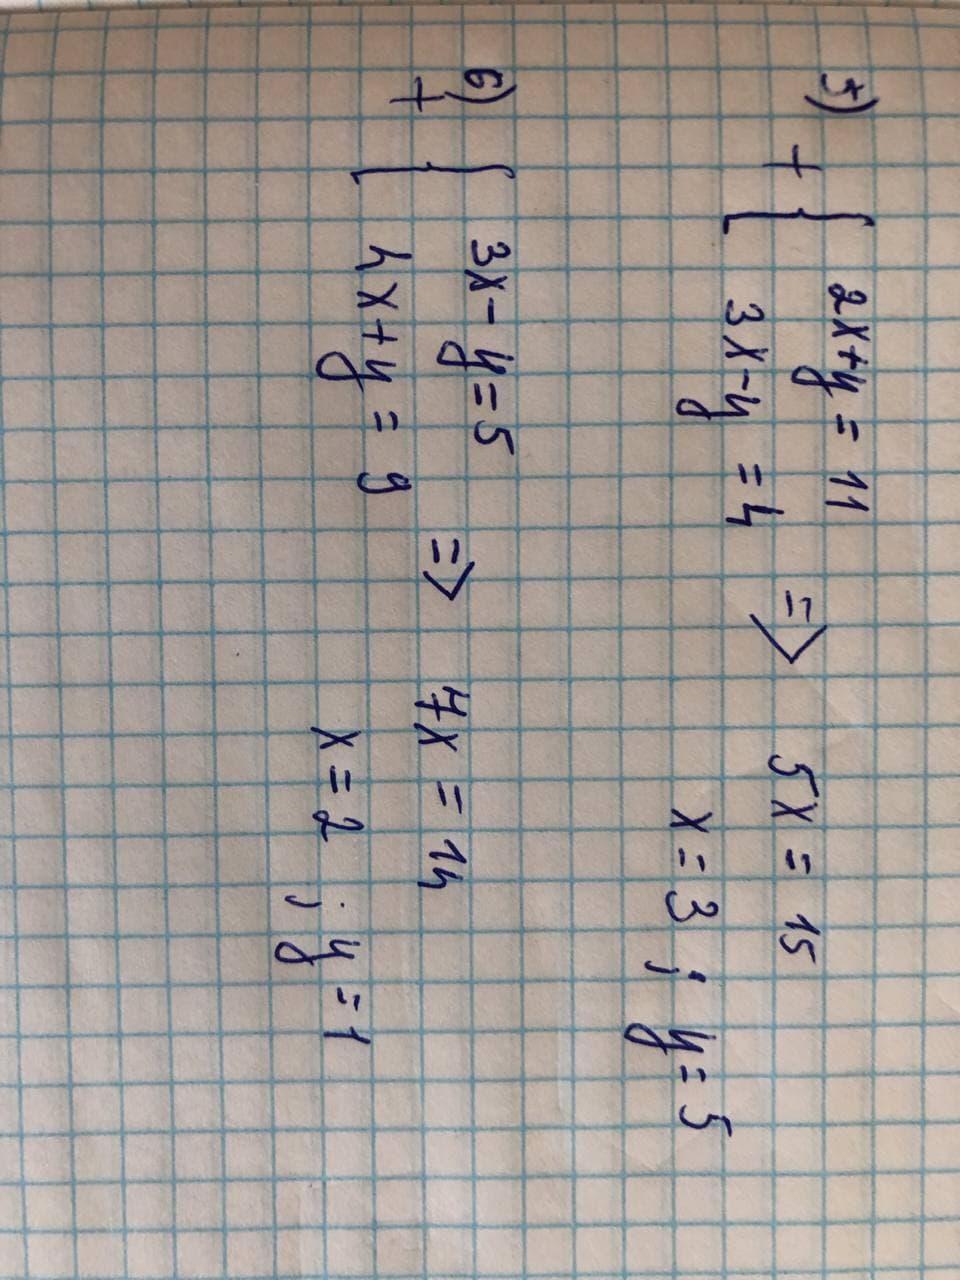 5) + { 2x+y = 11
3x-y = 4 => 5x = 15
x = 3 ; y = 5
6) + { 3x-y = 5
4x+y = 9 => 7x = 14
x = 2 ; y = 1